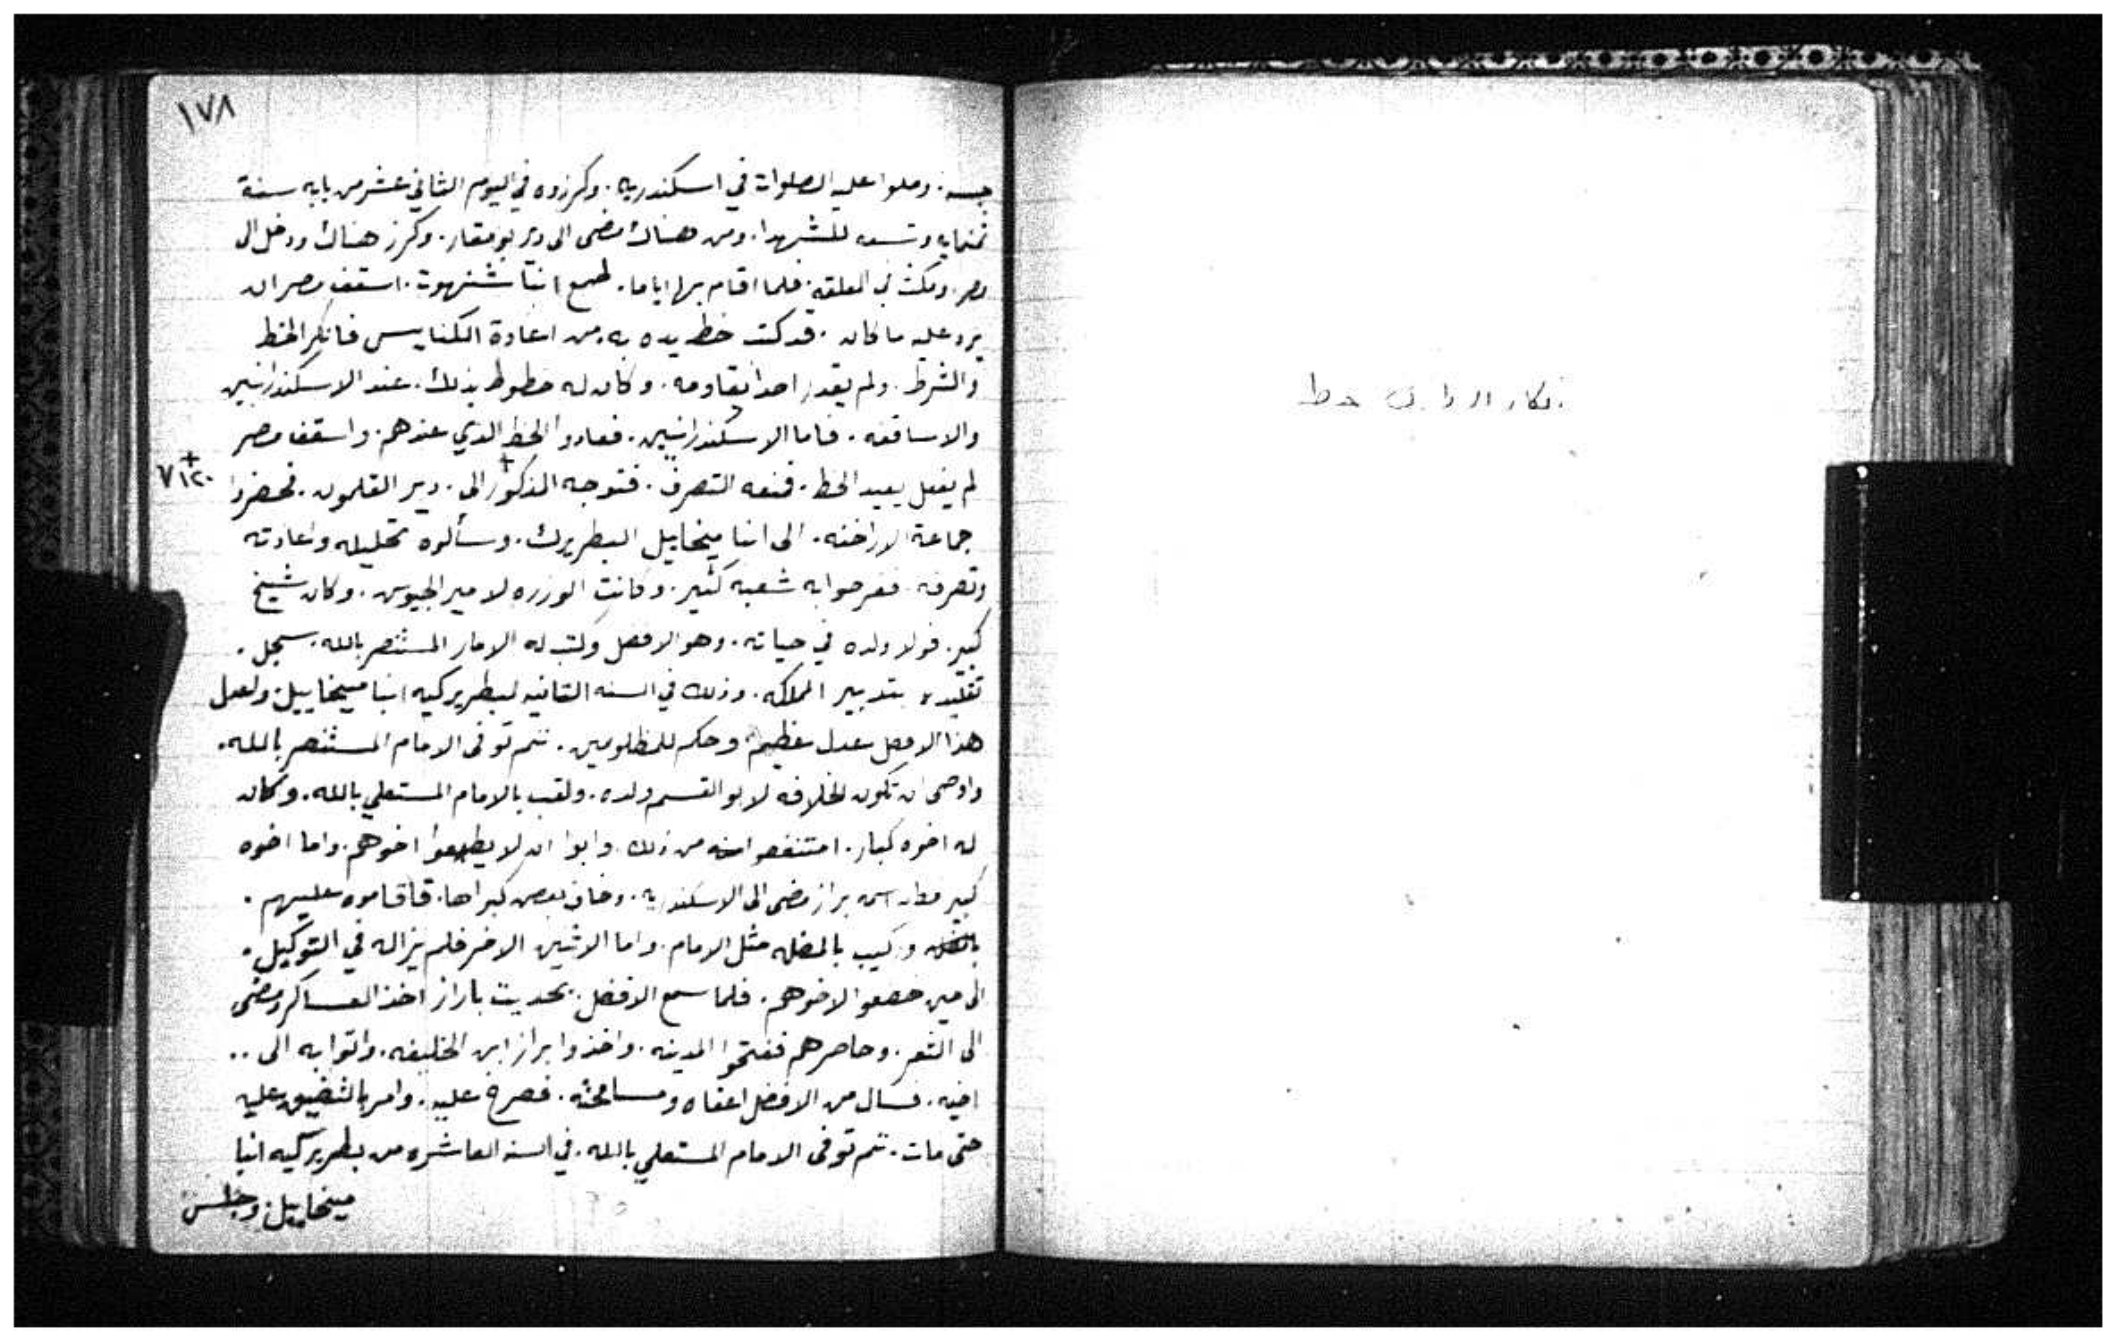 ١٧٨
جسه. وصلوا عليه الصلوات في اسكندريه. وكرزوه في اليوم الثاني عشر من بابه سنة
ثمنمايه وتسعه للشهدا. ومن هناك مضى الى دير بو مقار. وكرز هناك ودخل الى
مصر. ومكث في المعلقه. فلما اقام بها اياما. طمع انبا شنهوت. اسقف مصر ان
يرد عليه ما كان. قد كتب خط يده به. من اعادة الكنايس فانكر الخط
والشرط. ولم يقدر احدا يقاومه. وكان له خطوط بذلك. عند الاسكندرانيين
والاساقفه. فاما الاسكندرانيين. فعادوا الخط الدي عندهم. واسقف مصر
لم يفعل يعيد الخط. فمنعه التصرف. فتوجه المذكور الى. دير القلمون. فحضروا
+
٧١٢٠
جماعة الاراخنه. الى انبا ميخاييل البطريرك. وسألوه تحليله واعادته
وتصرفه. ففرحوا به شعبه كثير. وكانت الوزره لامير الجيوس. وكان شيخ
كبير. فولا ولده في حياته. وهو الافضل وكتب له الامار المستنصر بالله. سجل.
تقليده بتدبير المملكه. وذلك في السنه الثانيه لبطريركيه انبا ميخاييل. ولعدل
هذا الافضل عدل عظيم وحكم للمظلومين. تم توفى الامام المستنصر بالله.
واوصى ان تكون الخلافه لابو القسم ولده. ولقب بالامام المستعلي بالله. وكان
له اخوه كبار. امتنغصوا من ذلك. وابوا ان لا يطيعوا اخوهم. واما اخوه
كبير براز مضى الى الاسكندريه. وخاف بعض كبراها. فاقاموه عليهم.
وركيب بالمضله مثل الامام. واما الاثنين الاخر فلم يزاله في التوكيل.
الى حين خضعوا لاخوهم. فلما سمع الافضل. بحديت باراز اخذ العساكر ومضى
الى الثغر. وحاصرهم ففتحوا المدينه. واخذوا براز ابن الخليفه. واتوا به الى ..
اخيه. فسال من الافضل اعفاه ومسامحته. فصرخ عليه. وامر بالتضييق عليه
حتى مات. تم توفى الامام المستعلي بالله. في السنه العاشره من بطريركيه انبا
ميخاييل. وجلس
خط